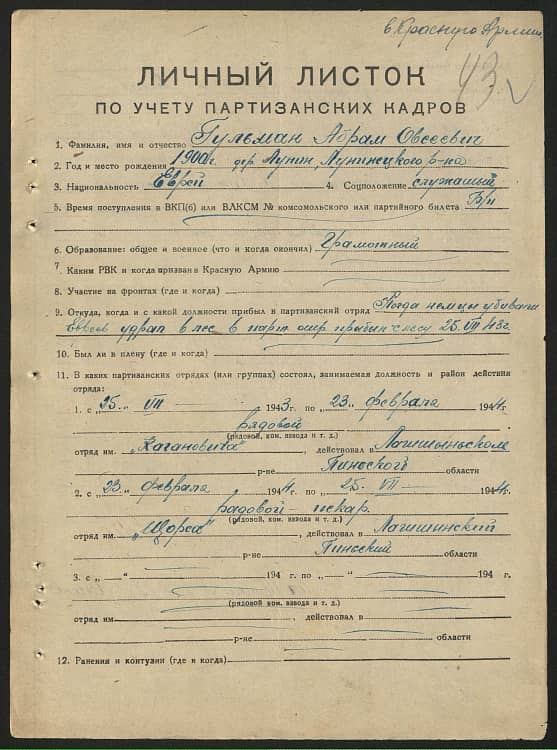 в Красную Армию
43
ЛИЧНЫЙ ЛИСТОК
ПО УЧЕТУ ПАРТИЗАНСКИХ КАДРОВ
1. Фамилия, имя и отчество Гульман Абрам Овсеевич
2. Год и место рождения 1900г. дер. Лунин, Лунинецкого р-на
3. Национальность Еврей 4. Соцположение служащий
5. Время поступления в ВКП(б) или ВЛКСМ № комсомольского или партийного билета Б/п
6. Образование: общее и военное (что и когда окончил) Грамотный
7. Каким РВК и когда призван в Красную Армию
8. Участие на фронтах (где и когда)
9. Откуда, когда и с какой должности прибыл в партизанский отряд Когда немцы убивали
Евреев удрал в лес в парт. отр. прибыл с лесу 25. VII 43г.
10. Был ли в плену (где и когда)
11. В каких партизанских отрядах (или группах) состоял, занимаемая должность и район действия
отряда:
1. с „25.“ VII 1943г. по „23“ февраля 1944г.
рядовой
(рядовой, ком. взвода и т. д.)
отряд им. „Кагановича“, действовал в Логишыньском
р-не Пинской области
2. с „23“ февраля 1944г. по „25.“ VII 1944г.
рядовой - пекар.
(рядовой, ком. взвода и т. д.)
отряд им. „Щорса“, действовал в Логишинский
р-не Пинский области
3. с „ “ 194 г. по „ “ 194 г.
(рядовой ком. взвода и т. д.)
отряд им. , действовал в
р-не области
12. Ранения и контузии (где и когда)